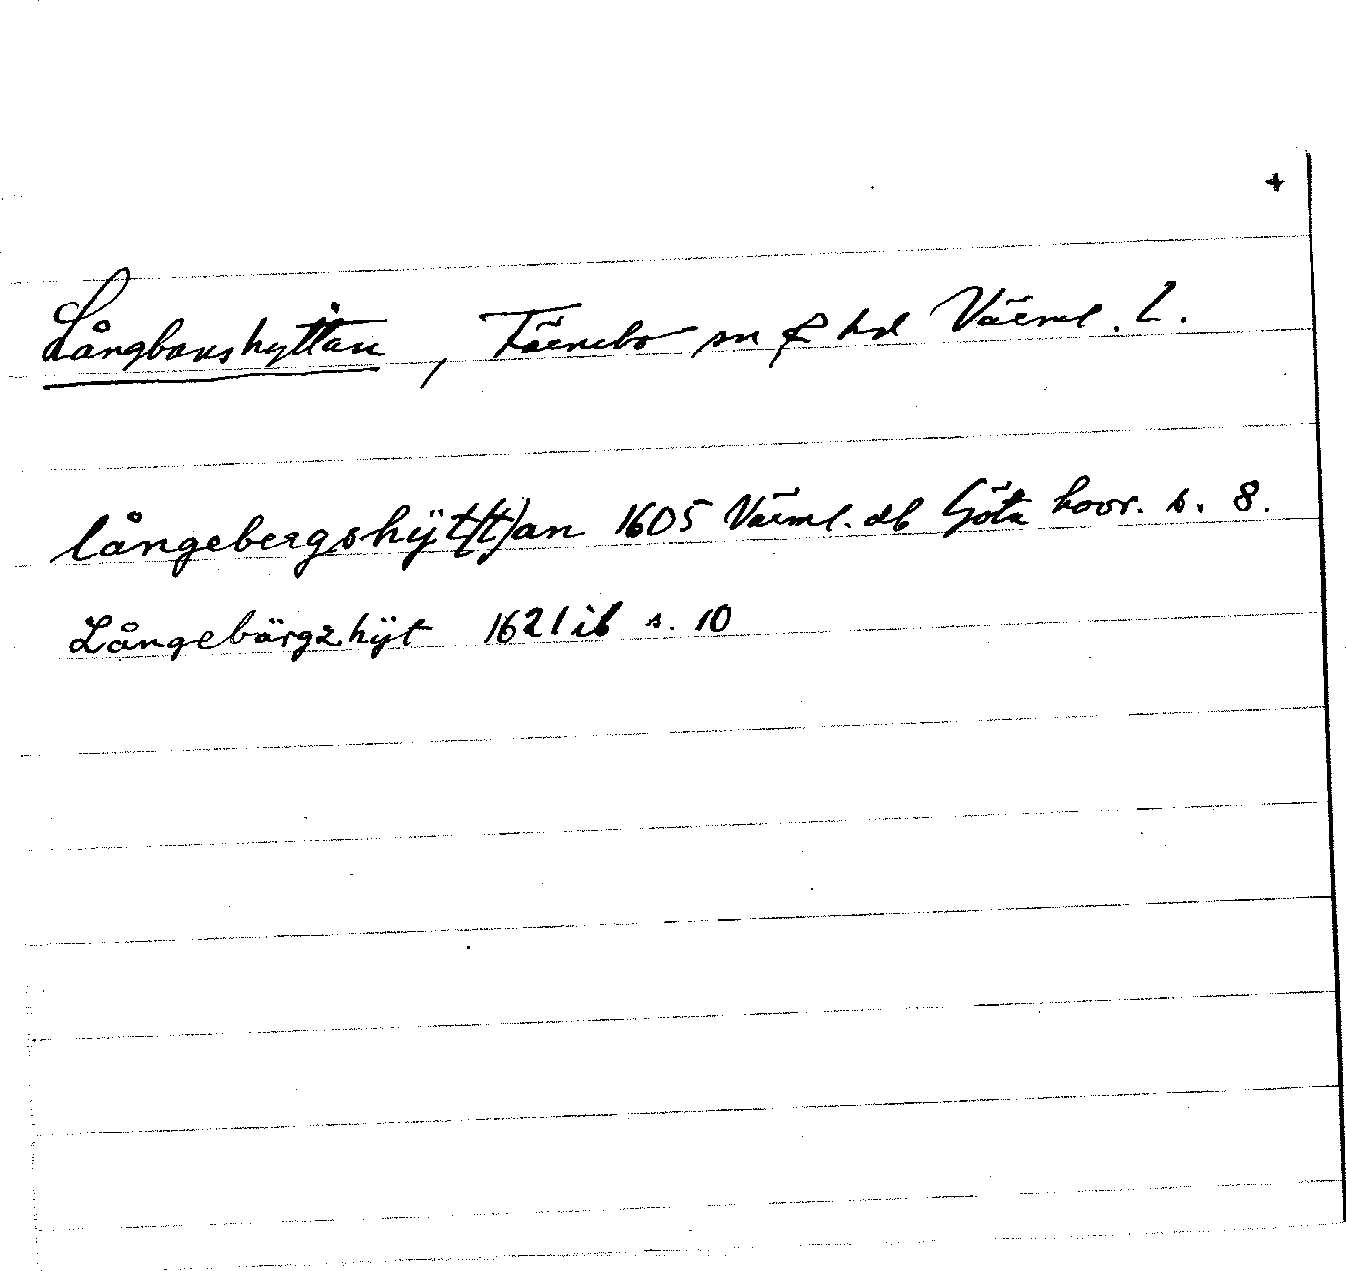 +
Långbanshyttan, Färnebo sn & hd Värml. L.
långebergshÿt(t)an 1605 Värml. db Göta hovr. s. 8.
Långebärgzhÿt 1621 ib s. 10